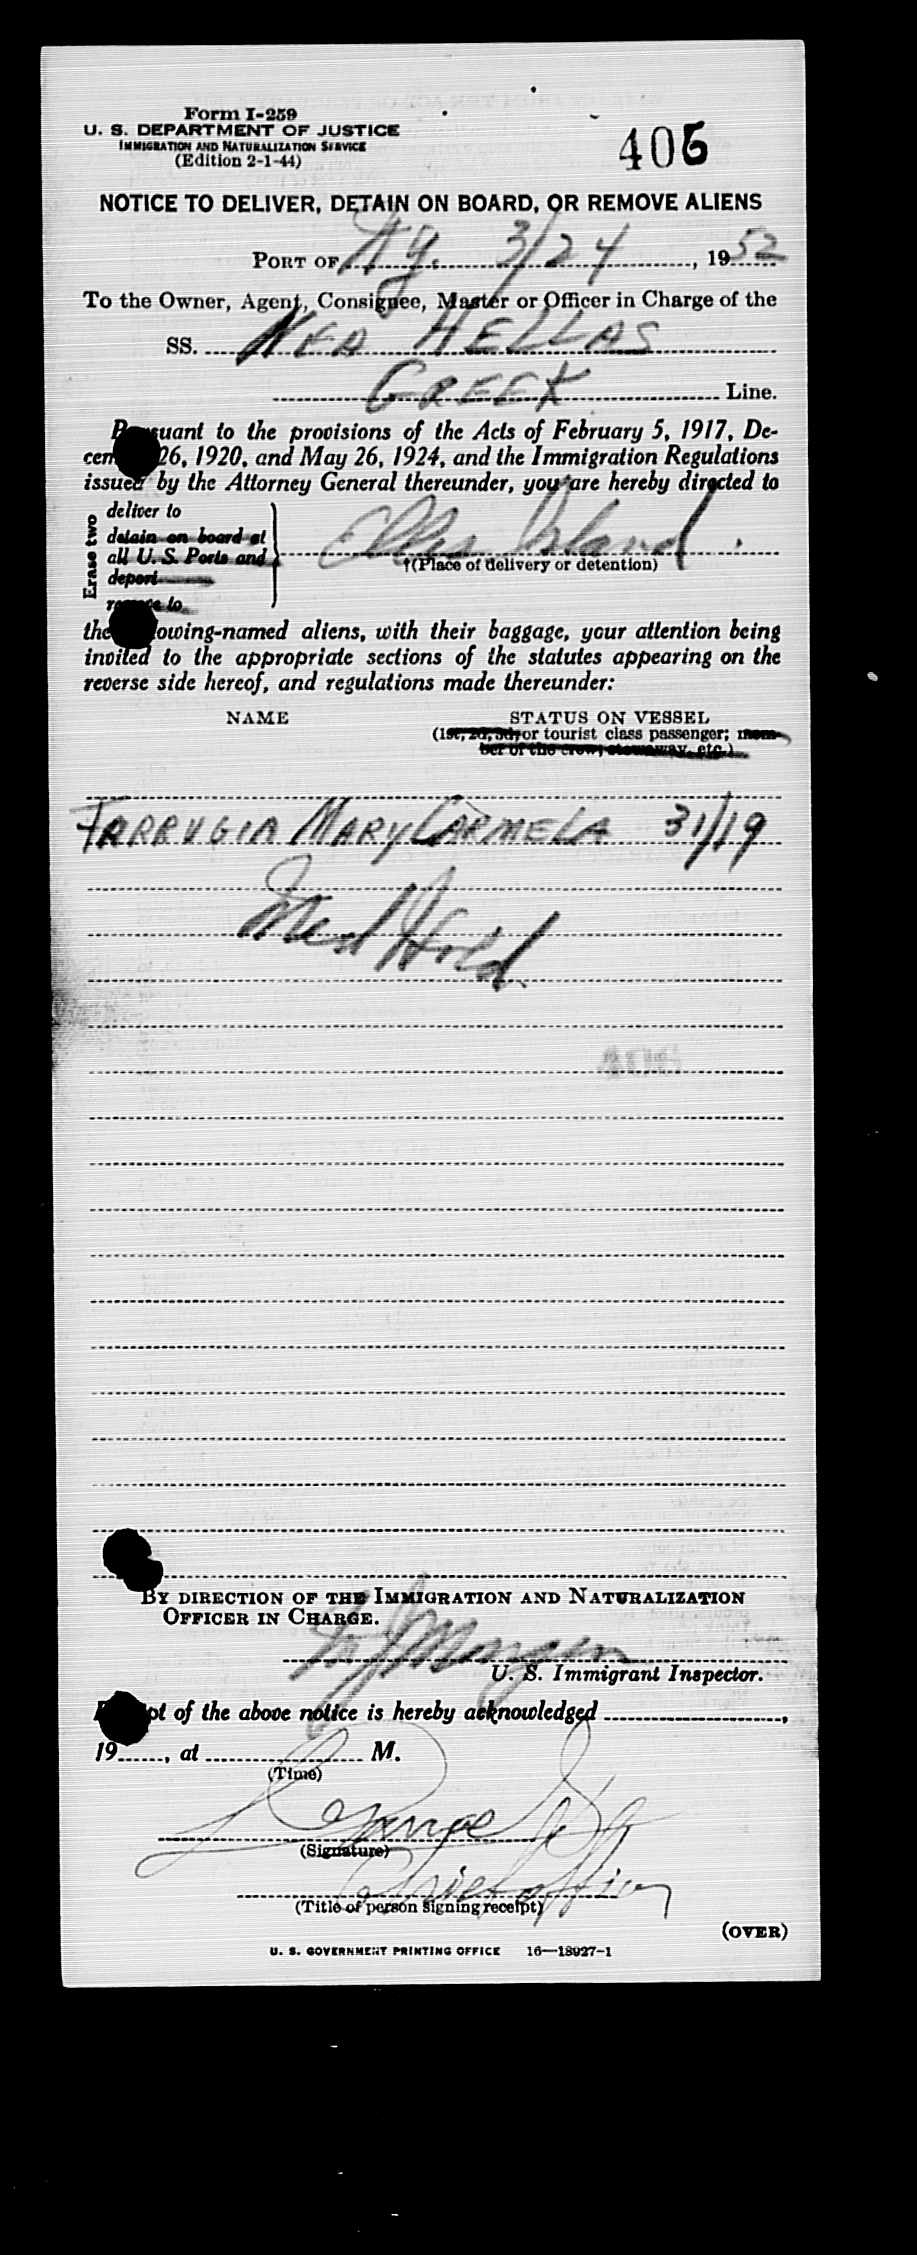 Form I-259
U. S. DEPARTMENT OF JUSTICE
IMMIGRATION AND NATURALIZATION SERVICE
(Edition 2-1-44)
406
NOTICE TO DELIVER, DETAIN ON BOARD, OR REMOVE ALIENS
PORT OF N.Y. 3/24, 1952
To the Owner, Agent, Consignee, Master or Officer in Charge of the
SS. NEA HELLAS
GREEK Line.
Pursuant to the provisions of the Acts of February 5, 1917, De-
cem 26, 1920, and May 26, 1924, and the Immigration Regulations
issued by the Attorney General thereunder, you are hereby directed to
Erase two
deliver to
detain on board at
all U. S. Ports and
deport
remove to
Ellis Island.
†(Place of delivery or detention)
the following-named aliens, with their baggage, your attention being
invited to the appropriate sections of the statutes appearing on the
reverse side hereof, and regulations made thereunder:
NAME
STATUS ON VESSEL
(1st, 2d, 3d, or tourist class passenger; mem-
ber of the crew, stowaway, etc.)
FARRUGIA MARY CARMELA 31/19
Med Hold
BY DIRECTION OF THE IMMIGRATION AND NATURALIZATION
OFFICER IN CHARGE.
Morgan
U. S. Immigrant Inspector.
Receipt of the above notice is hereby acknowledged,
19, at M.
(Time)
George
(Signature)
Chief officer
(Title of person signing receipt)
(OVER)
U. S. GOVERNMENT PRINTING OFFICE 16—18927-1